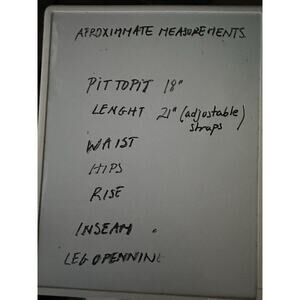 APROXIMMATE MEASUREMENTS
PIT TO PIT 18"
LENGHT 21" (adjustable)
straps
WAIST
HIPS
RISE
INSEAM
LEG OPENNING